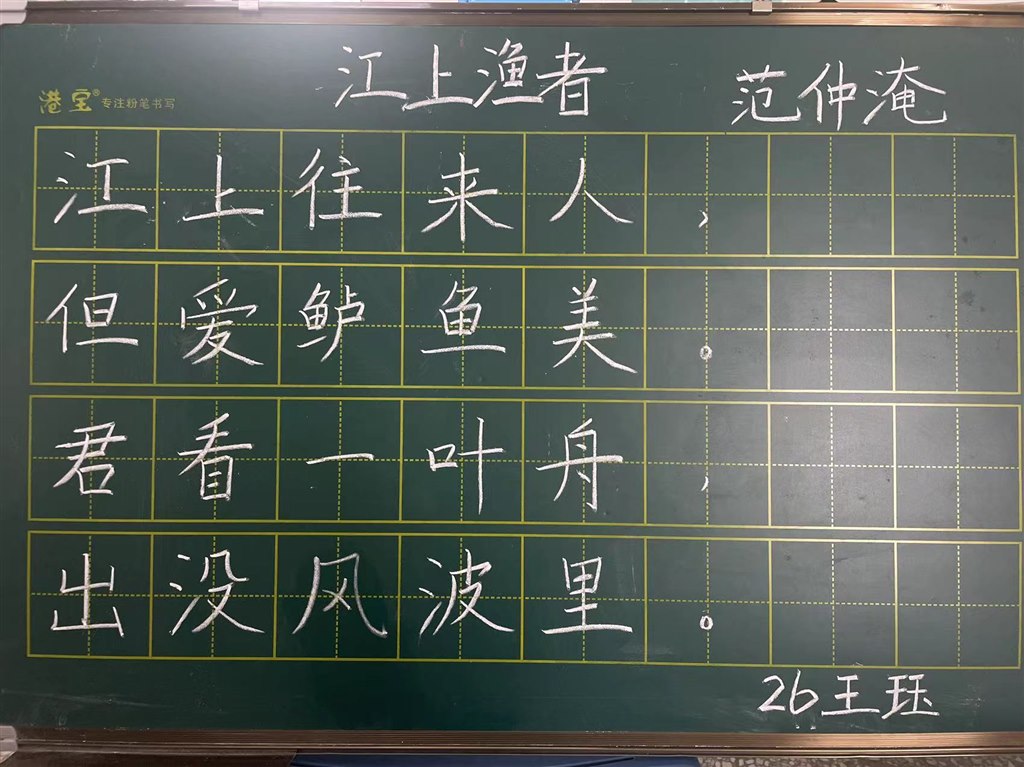 江上渔者 范仲淹
港宝® 专注粉笔书写
江上往来人,
但爱鲈鱼美。
君看一叶舟,
出没风波里。
26王珏